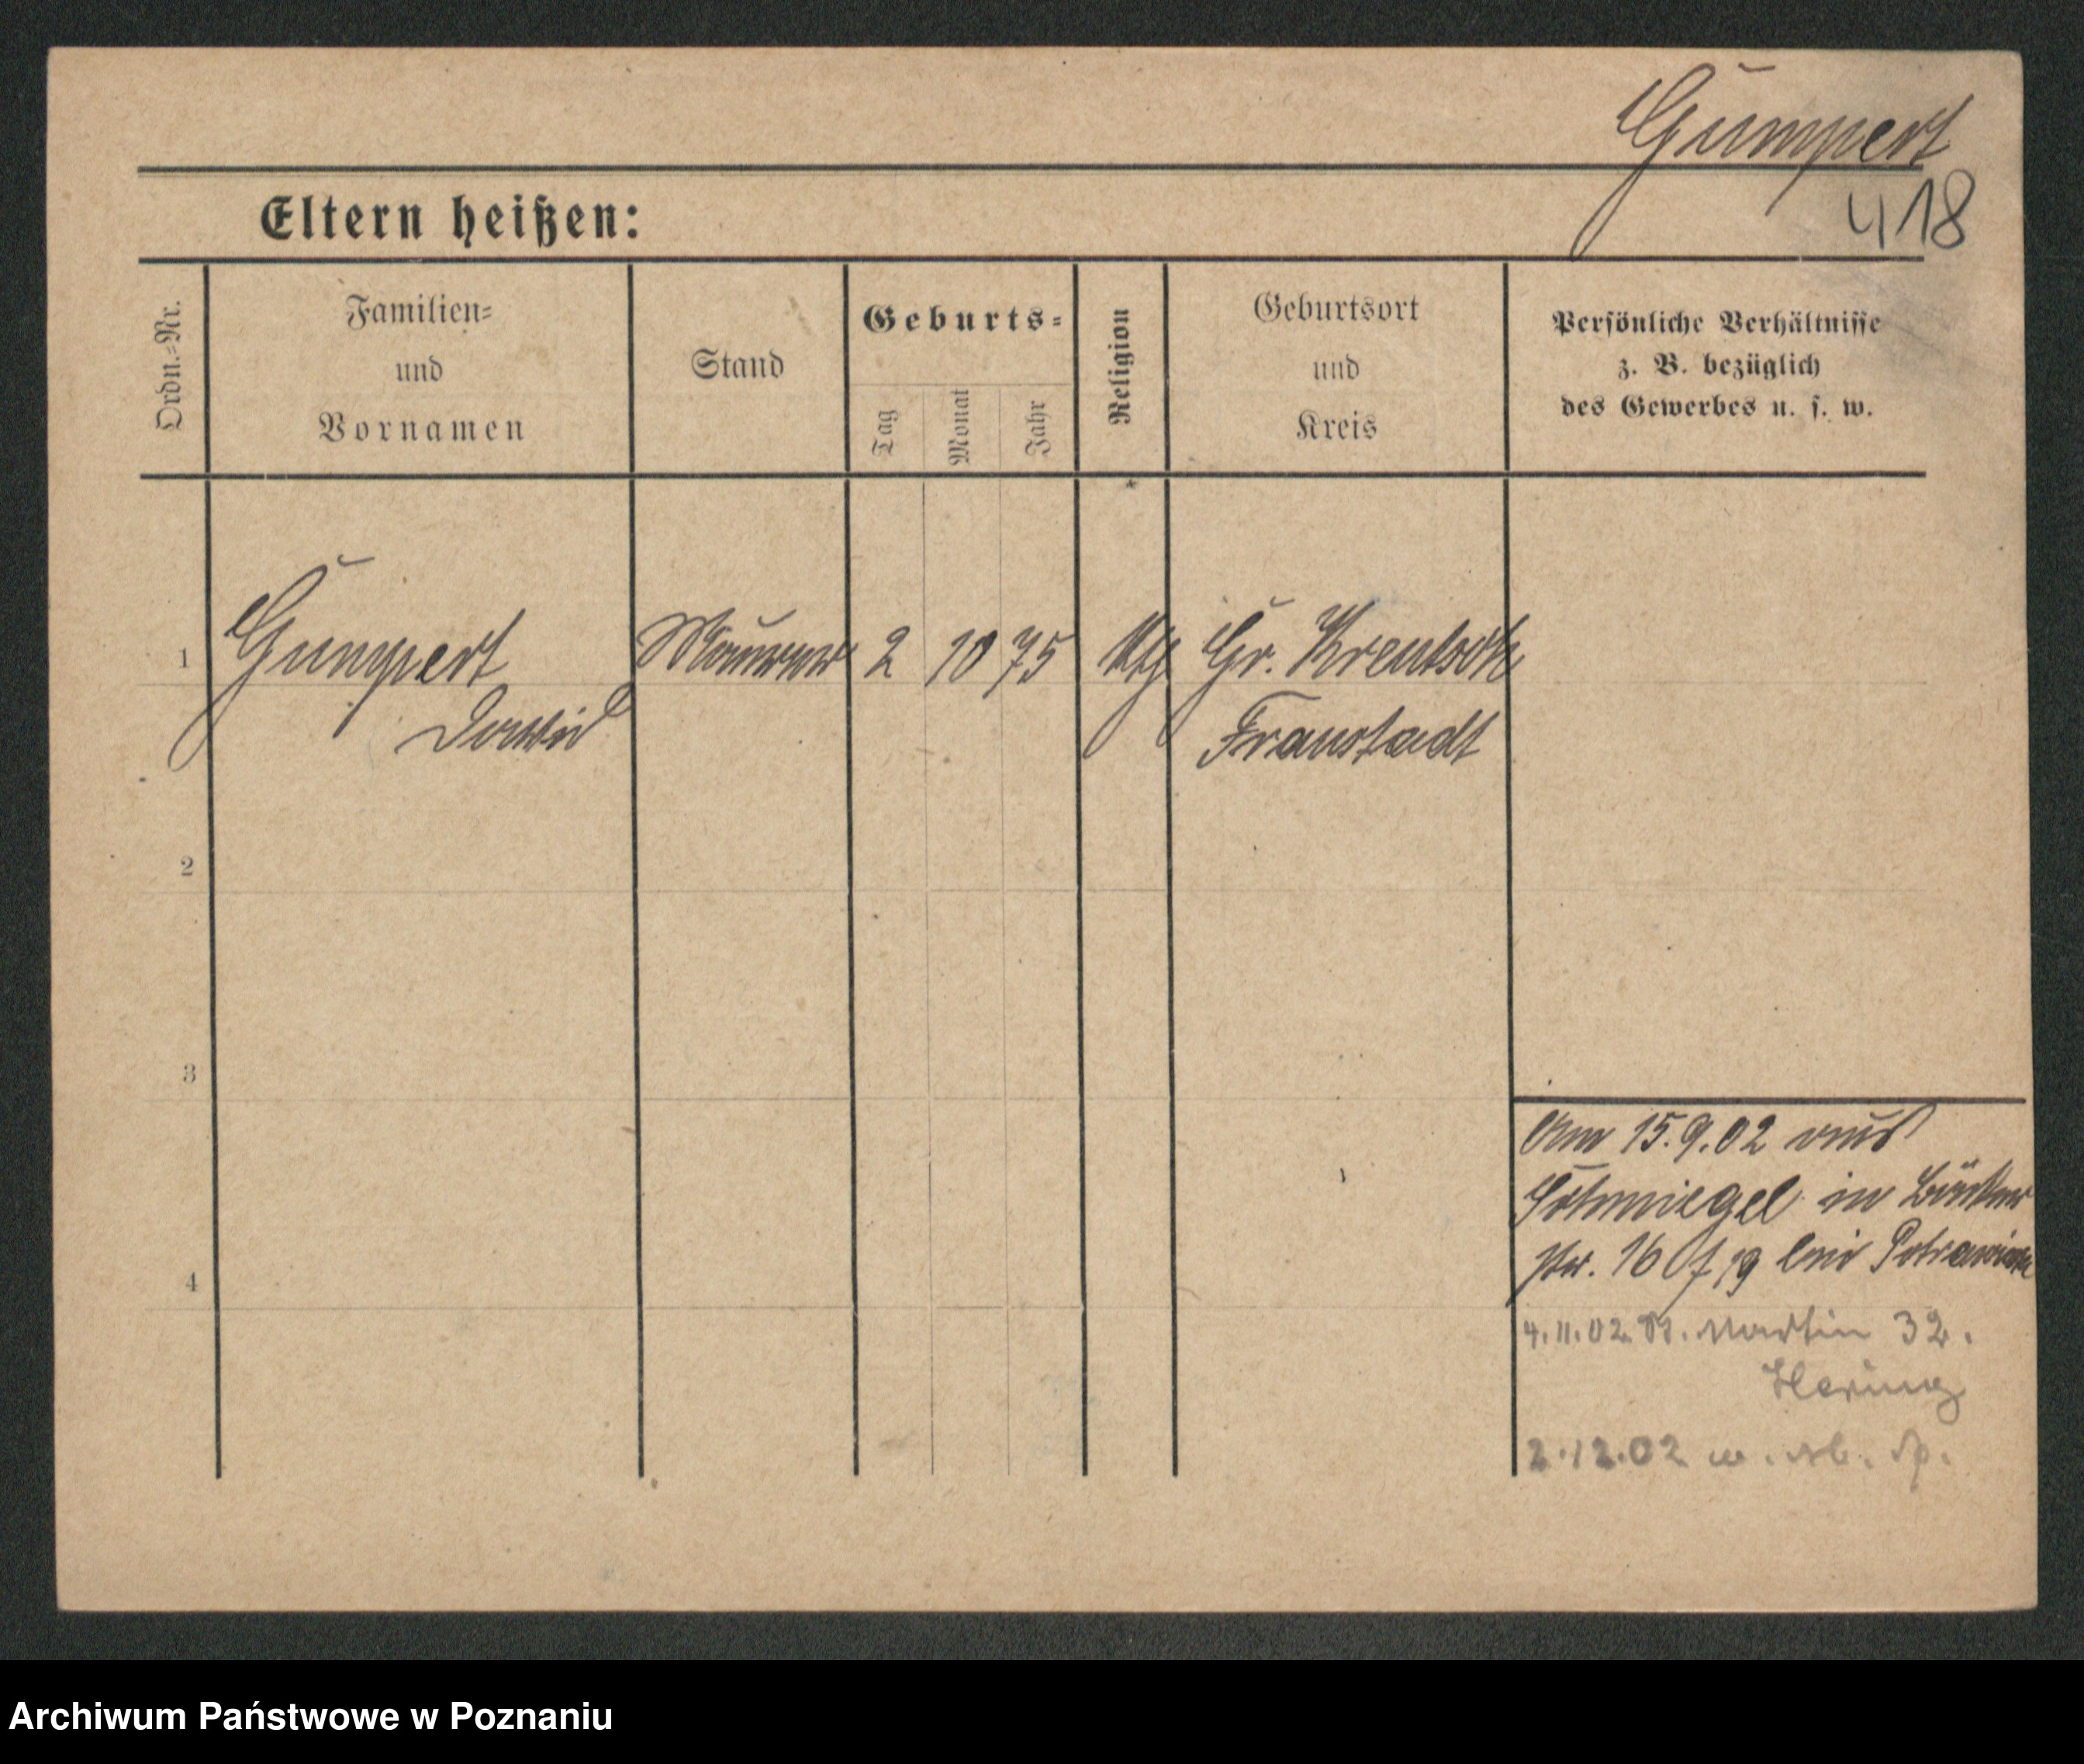 Gumpert
418
Eltern heißen:
Ordn.-Nr.
Familien-
und
Vornamen
Stand
Geburts-
Tag
Monat
Jahr
Religion
Geburtsort
und
Kreis
Persönliche Verhältnisse
z. B. bezüglich
des Gewerbes u. s. w.
1 Gumpert Maurer 2 10 75 Gr. Kreutsch
David Fraustadt
2
3
4
Am 15.9.02 aus
Schmiegel in
16 bei
4.11.02 St. Martin 32.
Hering
2.12.02
Archiwum Państwowe w Poznaniu